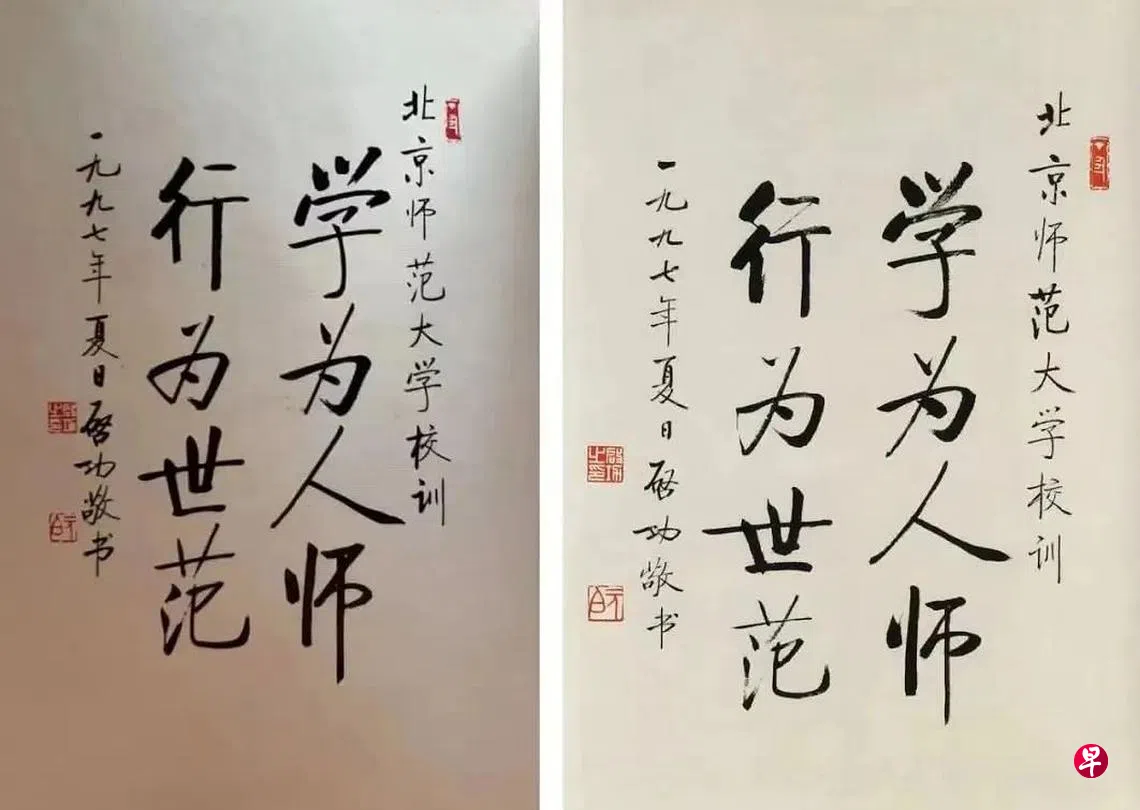 北京师范大学校训
学为人师
行为世范
一九九七年夏日启功敬书
元白
北京师范大学校训
学为人师
行为世范
一九九七年夏日启功敬书
啟功之印
元白
早